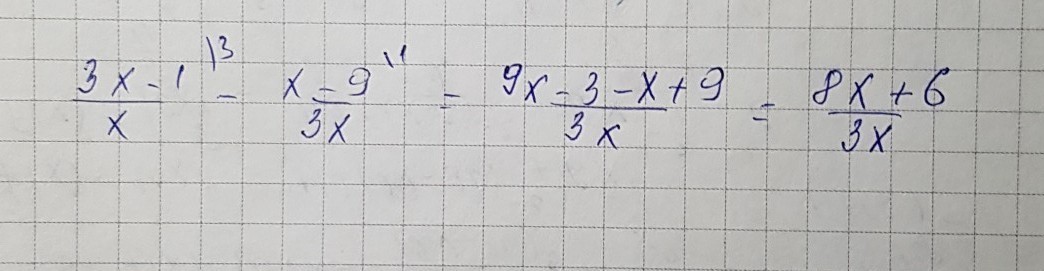 (3x-1)/x \3 - (x-9)/3x \1 = (9x-3-x+9)/3x = (8x+6)/3x